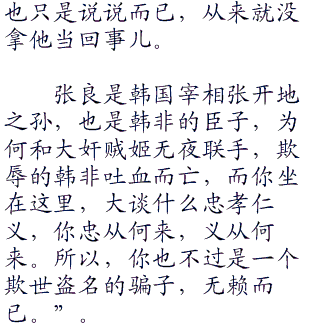 也只是说说而已，从来就没
拿他当回事儿。
张良是韩国宰相张开地
之孙，也是韩非的臣子，为
何和大奸贼姬无夜联手，欺
辱的韩非吐血而亡，而你坐
在这里，大谈什么忠孝仁
义，你忠从何来，义从何
来。所以，你也不过是一个
欺世盗名的骗子，无赖而
已。”。